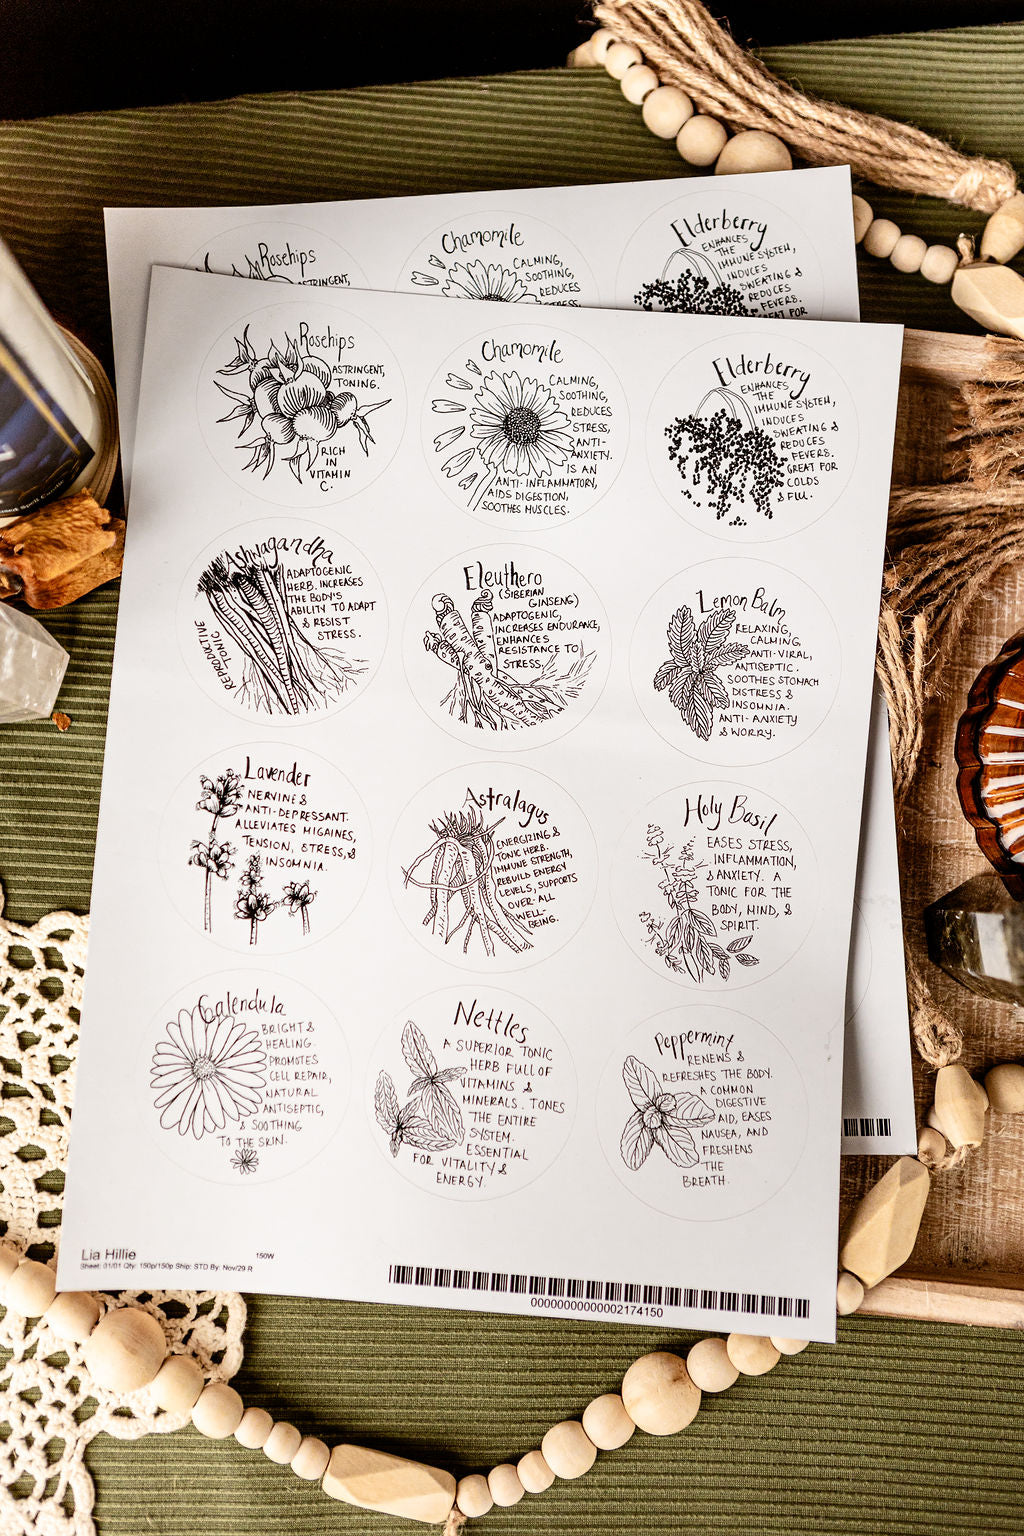 Rosehips
ASTRINGENT,
Chamomile
CALMING,
SOOTHING,
REDUCES
STRESS,
Elderberry
ENHANCES
THE
IMMUNE SYSTEM,
INDUCES
SWEATING &
REDUCES
FEVERS.
GREAT FOR
Rosehips
ASTRINGENT,
TONING.
RICH
IN
VITAMIN
C.
Chamomile
CALMING,
SOOTHING,
REDUCES
STRESS,
ANTI-
ANXIETY.
IS AN
ANTI-INFLAMMATORY,
AIDS DIGESTION,
SOOTHES MUSCLES.
Elderberry
ENHANCES
THE
IMMUNE SYSTEM,
INDUCES
SWEATING &
REDUCES
FEVERS.
GREAT FOR
COLDS
& FLU.
Ashwagandha
ADAPTOGENIC
HERB. INCREASES
THE BODY'S
ABILITY TO ADAPT
& RESIST
STRESS.
REPRODUCTIVE
TONIC
Eleuthero
(SIBERIAN
GINSENG)
ADAPTOGENIC,
INCREASES ENDURANCE,
ENHANCES
RESISTANCE TO
STRESS.
Lemon Balm
RELAXING,
CALMING,
ANTI-VIRAL,
ANTISEPTIC.
SOOTHES STOMACH
DISTRESS &
INSOMNIA.
ANTI-ANXIETY
& WORRY.
Lavender
NERVINE &
ANTI-DEPRESSANT.
ALLEVIATES MIGAINES,
TENSION, STRESS, &
INSOMNIA.
Astralagus
ENERGIZING &
TONIC HERB.
IMMUNE STRENGTH,
REBUILD ENERGY
LEVELS, SUPPORTS
OVER-ALL
WELL-
BEING.
Holy Basil
EASES STRESS,
INFLAMMATION,
& ANXIETY. A
TONIC FOR THE
BODY, MIND, &
SPIRIT.
Calendula
BRIGHT &
HEALING.
PROMOTES
CELL REPAIR,
NATURAL
ANTISEPTIC,
& SOOTHING
TO THE SKIN.
Nettles
A SUPERIOR TONIC
HERB FULL OF
VITAMINS &
MINERALS. TONES
THE ENTIRE
SYSTEM.
ESSENTIAL
FOR VITALITY &
ENERGY.
Peppermint
RENEWS &
REFRESHES THE BODY.
A COMMON
DIGESTIVE
AID, EASES
NAUSEA, AND
FRESHENS
THE
BREATH.
Lia Hillie
150W
Sheet: 01/01 Qty: 150p/150p Ship: STD By: Nov/29 R
00000000000002174150